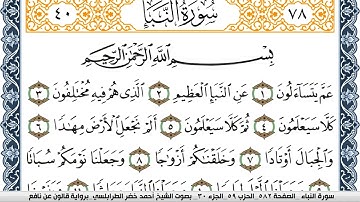 ٧٨ سُورَةُ النَّبَإِ ٤٠
بِسْمِ اللَّهِ الرَّحْمَٰنِ الرَّحِيمِ
عَمَّ يَتَسَاءَلُونَ ١ عَنِ النَّبَإِ الْعَظِيمِ ٢ الَّذِي هُمْ فِيهِ مُخْتَلِفُونَ ٣
كَلَّا سَيَعْلَمُونَ ٤ ثُمَّ كَلَّا سَيَعْلَمُونَ ٥ أَلَمْ نَجْعَلِ الْأَرْضَ مِهَٰدًا ٦
وَالْجِبَالَ أَوْتَادًا ٧ وَخَلَقْنَٰكُمْ أَزْوَٰجًا ٨ وَجَعَلْنَا نَوْمَكُمْ سُبَاتًا
سورة النبإ الصفحة ٥٨٢ الحزب ٥٩ الجزء ٣٠ - بصوت الشيخ أحمد خضر الطرابلسي - برواية قالون عن نافع